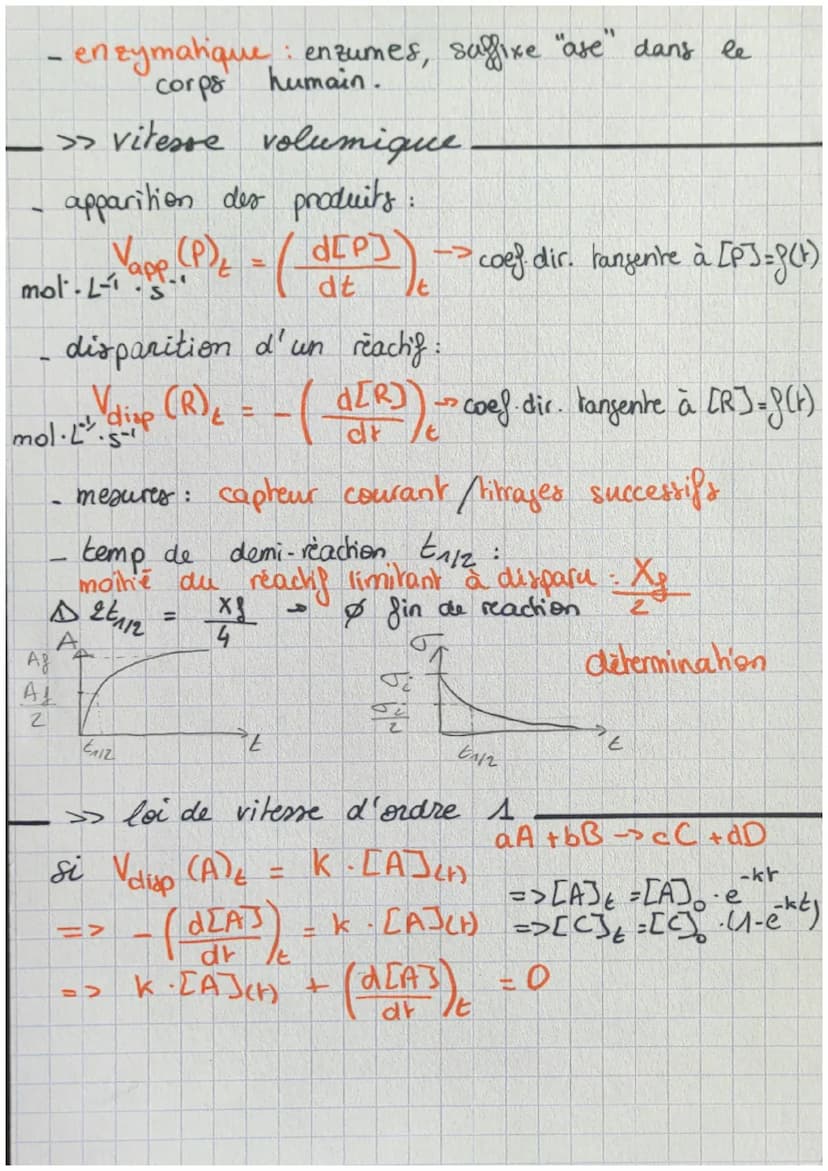 - enzymatique : enzumes, suffixe "ase" dans le
corps humain.
>> vitesse volumique
- apparition des produits :
Vapp (P)t = (d[P]/dt)t -> coef. dir. tangente à [P]=f(t)
mol.L⁻¹.s⁻¹
- disparition d'un réactif :
Vdisp (R)t = -(d[R]/dt)t -> coef. dir. tangente à [R]=f(t)
mol.L⁻¹.s⁻¹
- mesures : capteur courant / titrages successifs
- temp de demi-réaction t1/2 :
moitié du réactif limitant à disparu : Xf/2
Δ 2t1/2 = xf/4 -> ∅ fin de reaction
A
Af
Af/2
t1/2
t
σ
σi
σi/2
t1/2
t
détermination
>> loi de vitesse d'ordre 1
aA + bB -> cC + dD
si Vdisp (A)t = k . [A](t)
=> [A]t = [A]0 . e^-kt
=> -(d[A]/dt)t = k . [A](t)
=> [C]t = [C]0 . (1-e^-kt)
=> k . [A](t) + (d[A]/dt)t = 0